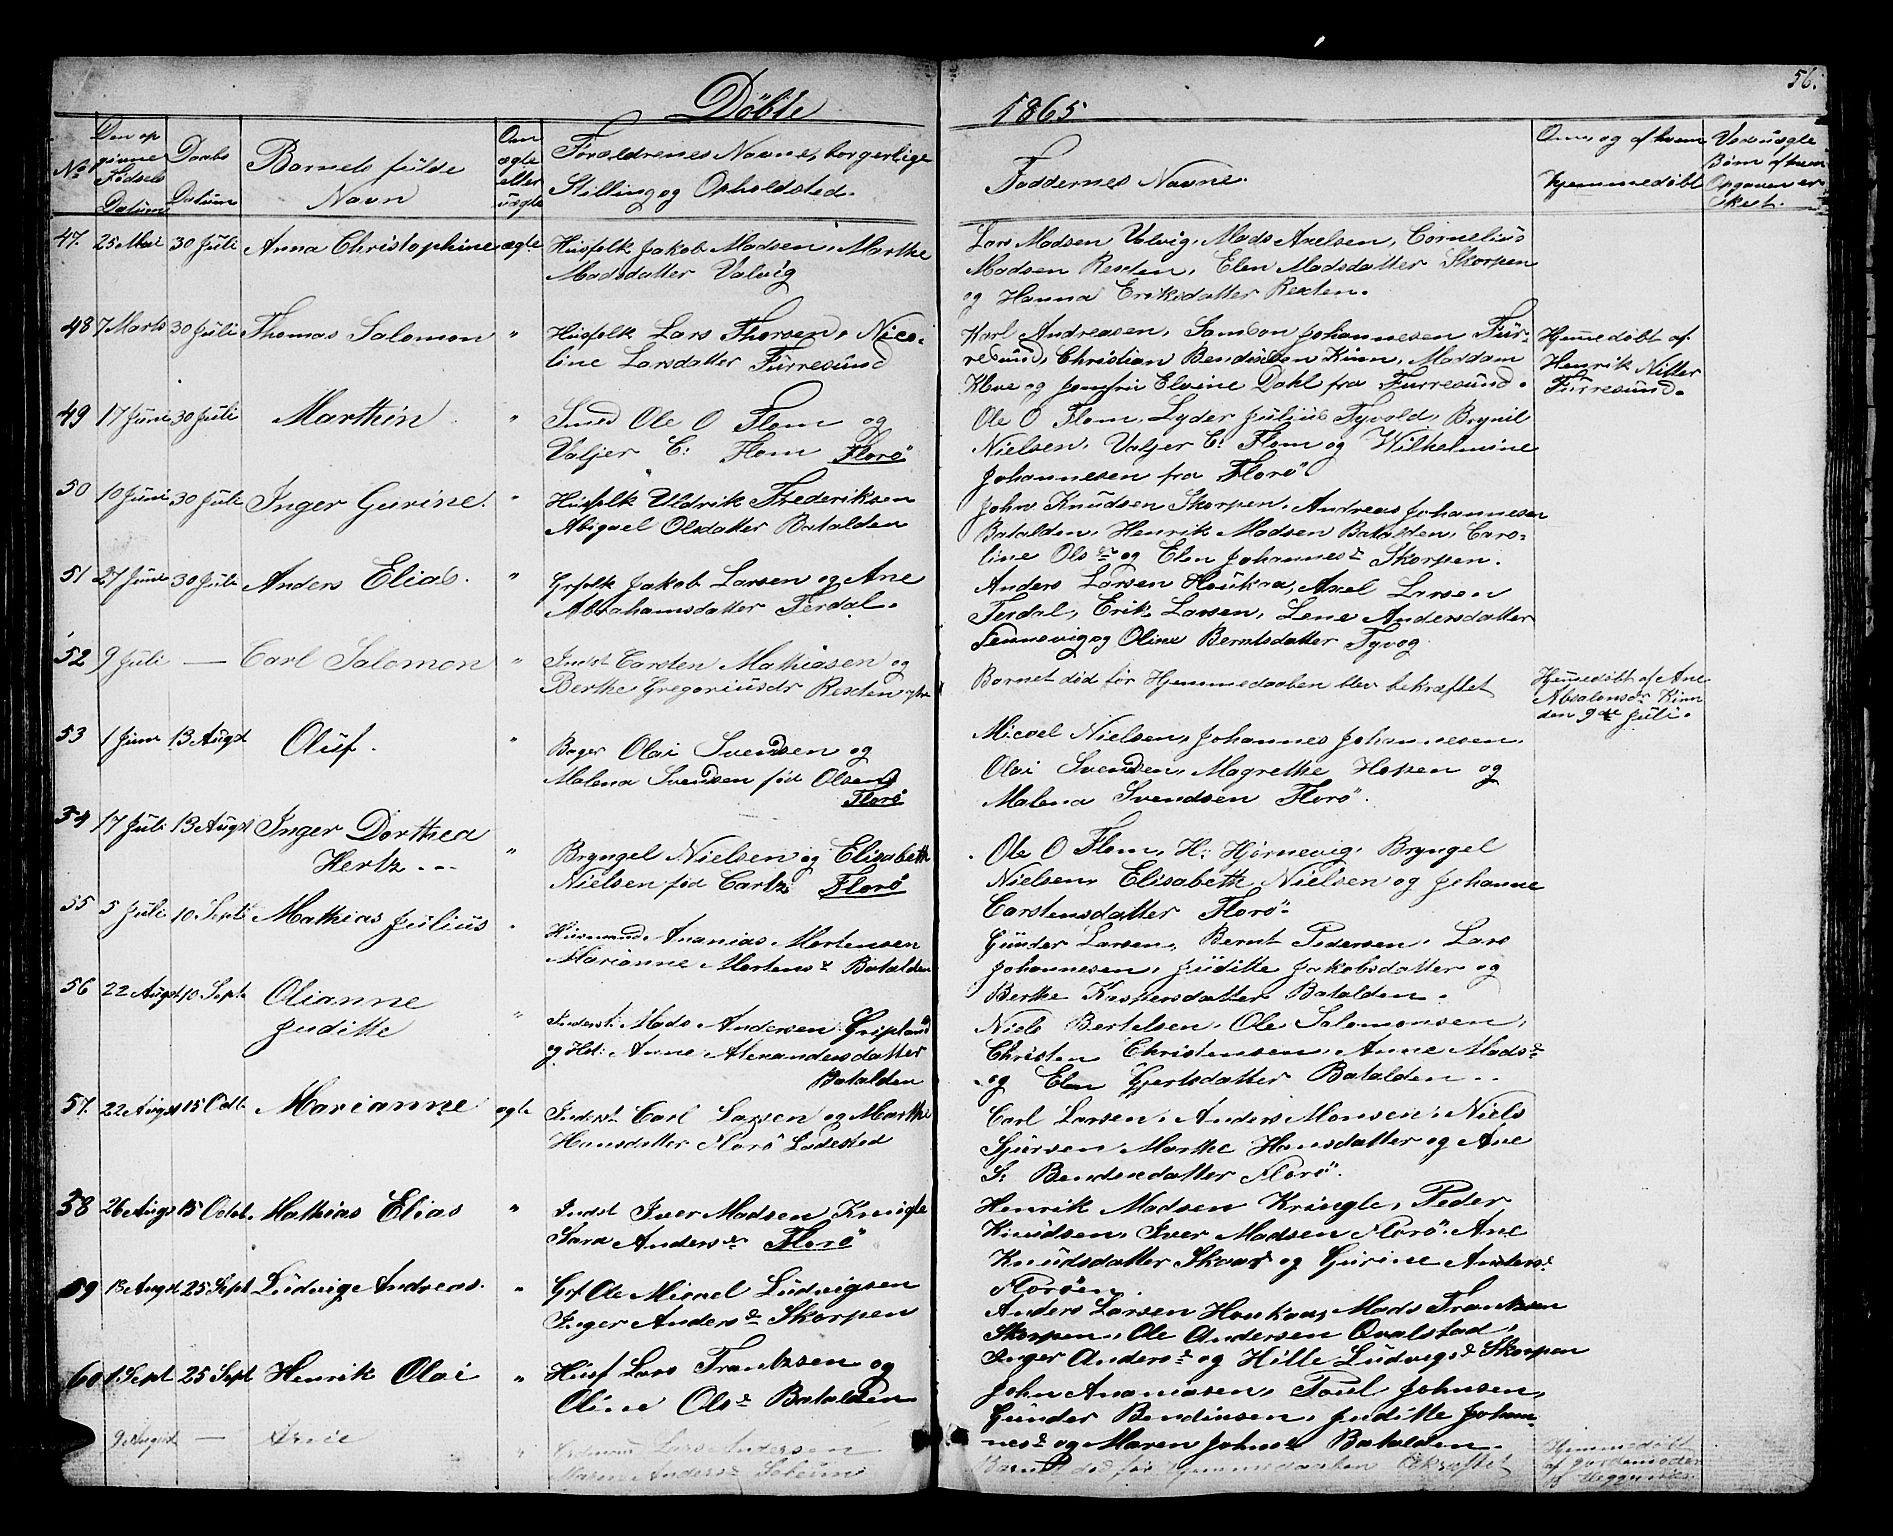 56.
Döbte 1865
No
Den op
givne
Födsels
Datum
Daabs
Datum
Barnets fulde
Navn
Om
ægte
eller
uægte
Forældrenes Navne, borgerlige
Stilling og Opholdsted.
Faddernes Navne.
Om, og af hvem
hjemmedöbt
Ved uægte
Börn af hvem
Opgaven er
skeet.
47. 25 Mai 30 Juli Anna Christophine ægte Husfolk Jakob Madsen, Marthe
Madsdatter Valvig
Lars Madsen Valvig, Mads Axelsen, Cornelius
Madsen Rexten, Elen Madsdatter Skorpen
og Hanna Eriksdatter Rexten.
48 7 Marts 30 Juli Thomas Salomon " Husfolk Lars Thorsen, Nico-
line Larsdatter Furresund
Karl Andreasen, Samson Johannesen Fur-
resund, Christian Bendixen Kinn, Madam
Klve og Jomfru Elvine Dahl fra Furresund.
Hjemedöbt af
Henrik Nitter
Furresund.
49 17 Juni 30 Juli Marthin " Smed Ole O Flom og
Valjer C. Flom Florö
Ole O Flom, Lyder Julius Tyvold, Brynil
Nielsen, Valjer C. Flom og Wilhelmine
Johannesen fra Florö
50 10 Juni 30 Juli Inger Gurine. " Husfolk Uldrik Frederiksen
Abigael Olsdatter Batalden
John Knudsen Skorpen, Andreas Johannesen
Batalden, Henrik Madsen Batalden, Caro-
line Olsdr og Elen Johannesd Skorpen.
51 27 Juni 30 Juli Anders Elias. " Grfolk Jakob Larsen og Ane
Abrahamsdatter Terdal.
Anders Larsen Houkaa, Axel Larsen
Terdal, Erik Larsen, Lene Andersdatter
Tennevig og Oline Berntsdatter Tyvog
52 9 Juli — Carl Salomon " Indst Carsten Mathiasen og
Berthe Gregoriusdr Rexten
Barnet död för Hjemmedaaben blev bekræftet
Hjemedöbt af Ane
Absalonsdr Kinn
den 9de Juli.
53 1 Juni 13 Augst Oluf. " Bager Olai Svendsen og
Malena Svendsen föd Olsen
Florö
Micael Nielsen, Johannes Johannesen,
Olai Svendsen, Magrethe Hopen og
Malena Svendsen Florö.
54 17 Juli 13 Augst Inger Dorthea
Hertz
" Bryngel Nielsen og Elisabeth
Nielsen föd Cartz Florö
Ole O Flom, H: Hjörnevig, Bryngel
Nielsen, Elisabeth Nielsen og Johanne
Carstensdatter Florö
55 5 Juli 10 Septb Mathias Julius " Huusmand Ananias Mortensen
Marianne Mortensd Batalden
Gunder Larsen, Bernt Pedersen, Lars
Johannesen, Juditte Jakobsdatter og
Berthe Kaspersdatter Batalden.
56 22 Augst 10 Septb Olianne
Juditte
" Inderst Mads Andersen Gripland
og Hst: Anne Alexandersdatter
Batalden
Niels Bertelsen, Ole Salomonsen,
Christen Christensen, Anne Madsd
og Elen Gjertsdatter Batalden.
57. 22 Augst 15 Octb. Marianne ægte Inderst Carl Larsen og Marthe
Hansdatter Florö Ladested
Carl Larsen, Anders Monsen, Niels
Sjursen, Marthe Hansdatter og Ane
S. Bendixdatter Florö.
58 26 Augst 15 Octob. Mathias Elias " Indst Iver Madsen Kringle
Sara Andersdr Florö
Henrik Madsen Kringle, Peder
Knudsen, Iver Madsen Florö. Ane
Knudsdatter Skaar og Gurine Andersd
Floröen.
59 13 Augst 25 Sept Ludvig Andreas. " Grf Ole Micael Ludvigsen
Inger Andersd Skorpen
Anders Larsen Houkaa, Mads Frantzsen
Skorpen, Ole Andersen Qvalstad,
Inger Andersd og Hille Ludvigsd Skorpen
60 1 Sept 25 Sept Henrik Olai " Husf Lars Frantzsen og
Oline Olsd Batalden
John Ananiasen, Poul Johnsen,
Gunder Bendixsen, Juditte Johan-
nesd og Maren Johnsd Batalden.
9 Augst — " Lars Andersen
Maren Andersd
Barnet död för Hjemmedaaben bekræftet
Hjemmedöbt
af Jordemoder